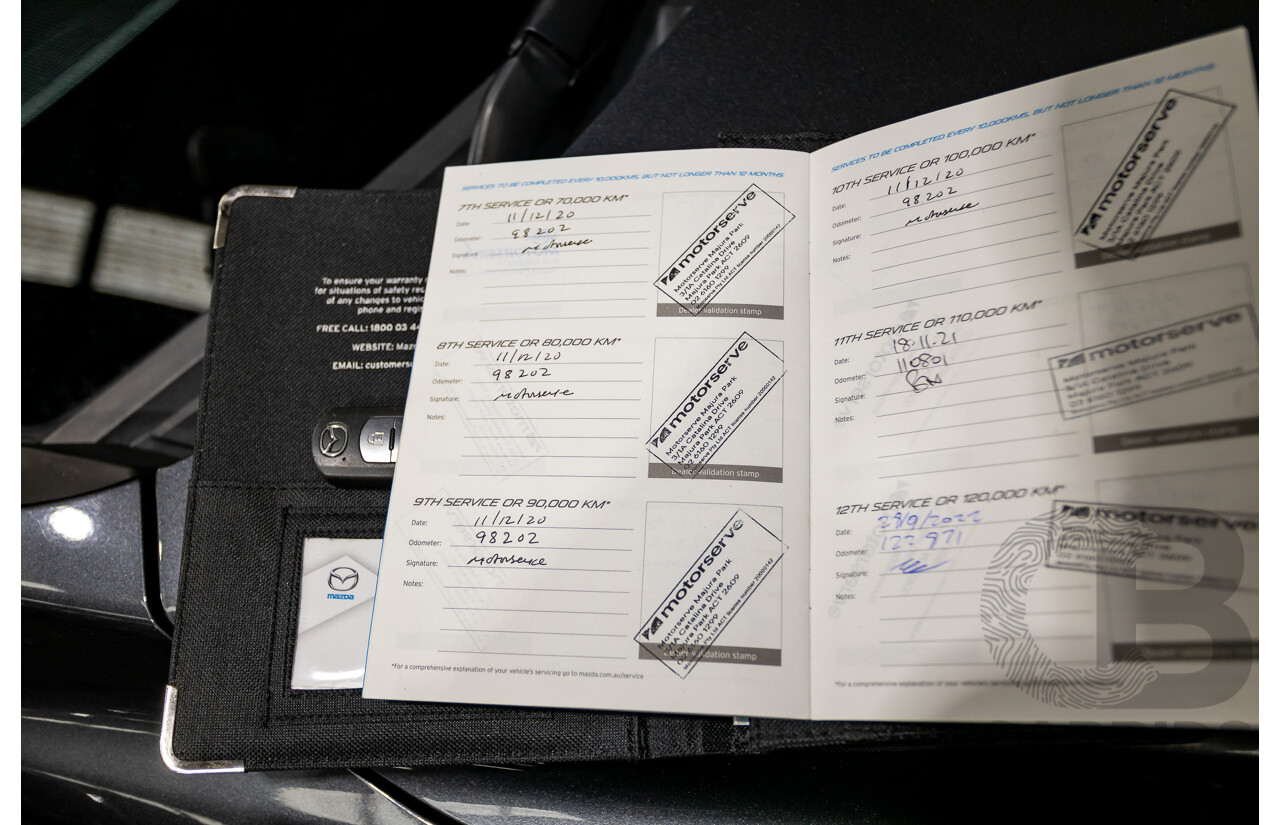 To ensure your warranty
for situations of safety rec
of any changes to vehic
phone and regis
FREE CALL: 1800 03 4
WEBSITE: Maz
EMAIL: customers
mazda
SERVICES TO BE COMPLETED EVERY 10,000KMS, BUT NOT LONGER THAN 12 MONTHS.
7TH SERVICE OR 70,000 KM*
Date: 11/12/20
Odometer: 98202
Signature: Motorserve
Notes:
motorserve
Motorserve Majura Park
3/1A Catalina Drive
Majura Park ACT 2609
02 6160 1299
Dealer validation stamp
8TH SERVICE OR 80,000 KM*
Date: 11/12/20
Odometer: 98202
Signature: Motorserve
Notes:
motorserve
Motorserve Majura Park
3/1A Catalina Drive
Majura Park ACT 2609
02 6160 1299
Dealer validation stamp
9TH SERVICE OR 90,000 KM*
Date: 11/12/20
Odometer: 98202
Signature: Motorserve
Notes:
motorserve
Motorserve Majura Park
3/1A Catalina Drive
Majura Park ACT 2609
02 6160 1299
Dealer validation stamp
*For a comprehensive explanation of your vehicle's servicing go to mazda.com.au/service
SERVICES TO BE COMPLETED EVERY 10,000KMS, BUT NOT LONGER THAN 12 MONTHS.
10TH SERVICE OR 100,000 KM*
Date: 11/12/20
Odometer: 98202
Signature: Motorserve
Notes:
motorserve
11TH SERVICE OR 110,000 KM*
Date: 18.11.21
Odometer: 110801
Signature:
Notes:
motorserve
Motorserve Majura Park
12TH SERVICE OR 120,000 KM*
Date: 28/9/2022
Odometer: 122 971
Signature:
Notes:
motorserve
*For a comprehensive explanation of your vehicle's